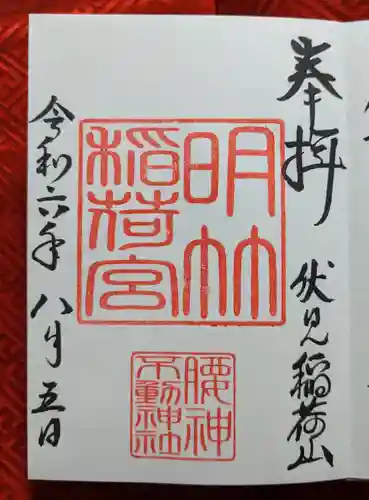 奉拝
伏見稲荷山
明
稲荷宮
腰神
不動神社
令和六年八月五日